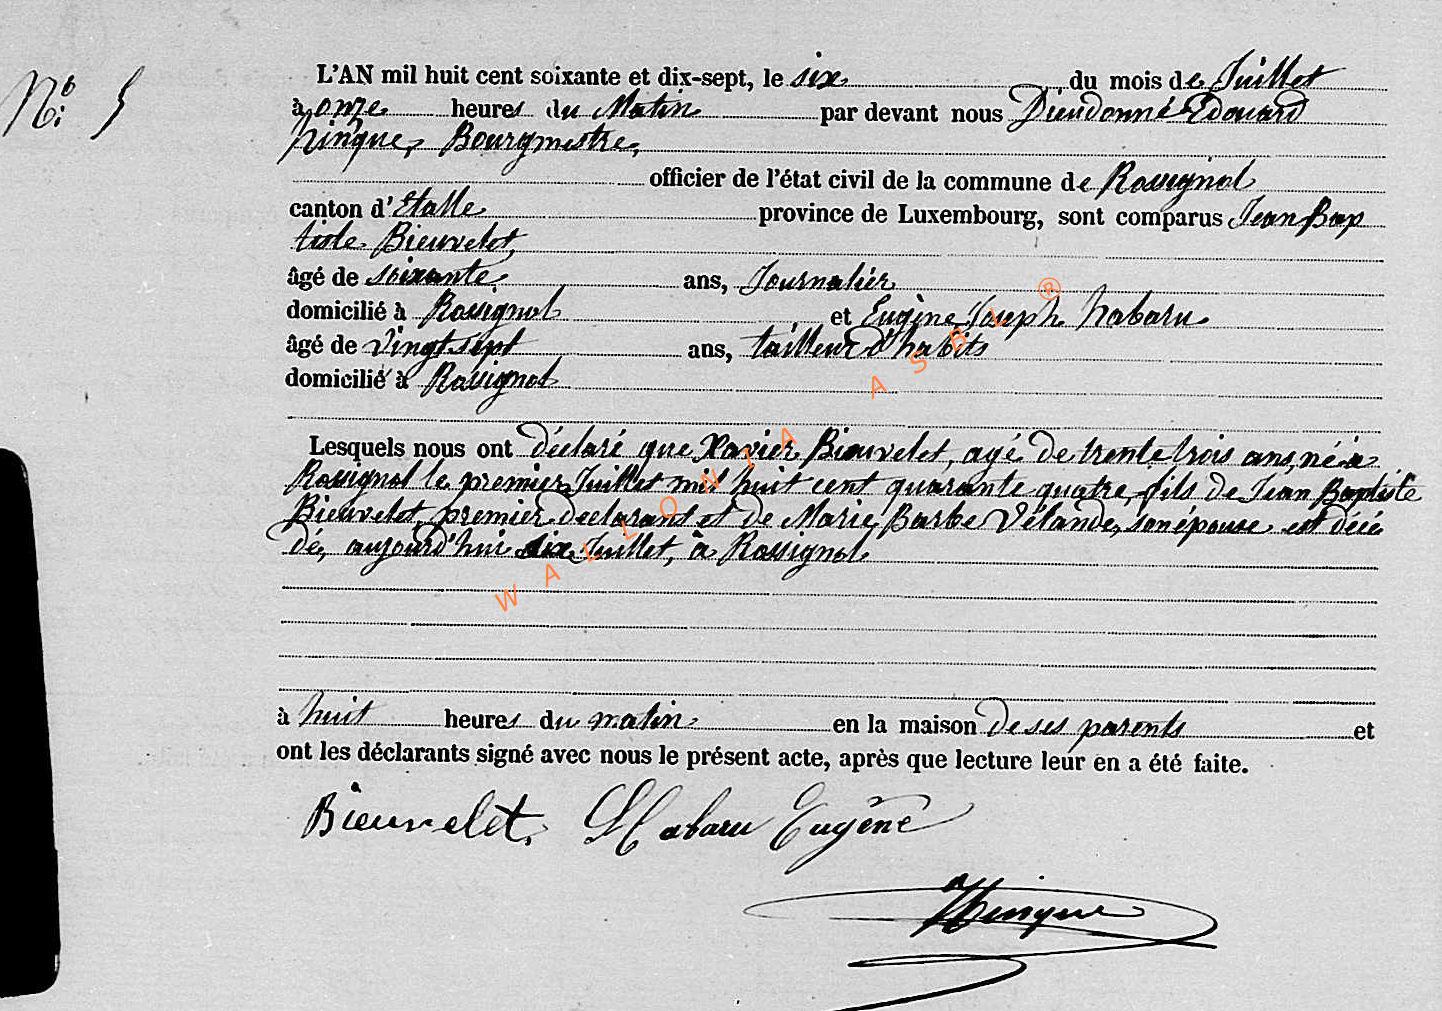 N°: 5
L'AN mil huit cent soixante et dix-sept, le six du mois de Juillet
à onze heures du Matin par devant nous Dieudonné Edouard
Hinque, Bourgmestre,
officier de l'état civil de la commune de Rossignol
canton d'Etalle province de Luxembourg, sont comparus Jean Bap
tiste Bieuvelet,
âgé de soixante ans, Journalier
domicilié à Rossignol et Eugène Joseph Habaru
âgé de vingt sept ans, tailleur d'habits
domicilié à Rossignol
Lesquels nous ont déclaré que Xavier Bieuvelet, agé de trente trois ans, né à
Rossignol le premier Juillet mil huit cent quarante quatre, fils de Jean Baptiste
Bieuvelet, premier declarant et de Marie Barbe Vélande, son épouse est décé
dé, aujourd'hui six Juillet, à Rossignol
à huit heures du matin en la maison de ses parents et
ont les déclarants signé avec nous le présent acte, après que lecture leur en a été faite.
Bieuvelet, Habaru Eugène
Hinque
WALLONIA ASBL ®